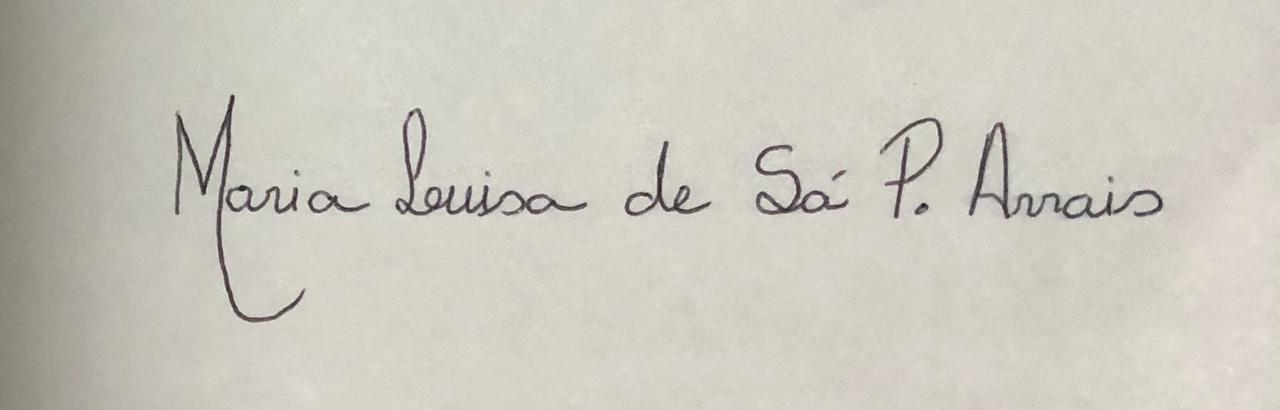 Maria Louisa de Sá P. Arrais